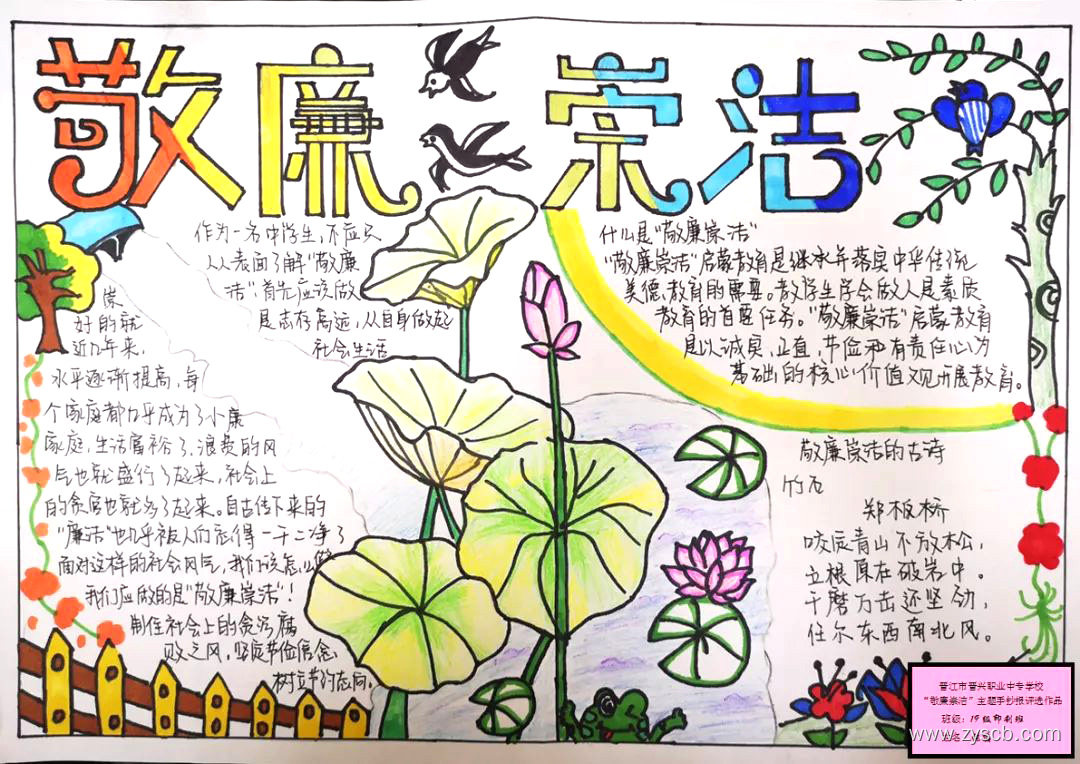 敬廉崇洁
作为一名中学生,不应只
从表面了解"敬廉
洁":首先应该做
是志存高远,从自身做起
社会生活
做
好的就
近几年来,
水平逐渐提高,每
个家庭都几乎成为了小康
家庭,生活富裕了,浪费的风
后也就盛行了起来,社会上
的贪官也就多了起来。自古传下来的
"廉洁"也几乎被人们忘得一干二净了
面对这样的社会风气,我们该怎么做
我们应做的是"敬廉崇洁"!
制住社会上的贪污腐
败之风,坚定节俭信念,
树立节约志向。
什么是"敬廉崇洁"
"敬廉崇洁"启蒙教育是继承并落实中华传统
美德,教育的需要。教学生学会做人是素质
教育的首要任务。"敬廉崇洁"启蒙教育
是以诚实,正直,节俭和有责任心为
基础的核心价值观开展教育。
敬廉崇洁的古诗
竹石
郑板桥
咬定青山不放松,
立根原在破岩中。
千磨万击还坚劲,
任尔东西南北风。
晋江市晋兴职业中专学校
"敬廉崇洁"主题手抄报评选作品
班级:19级印刷班
www.zyscb.com